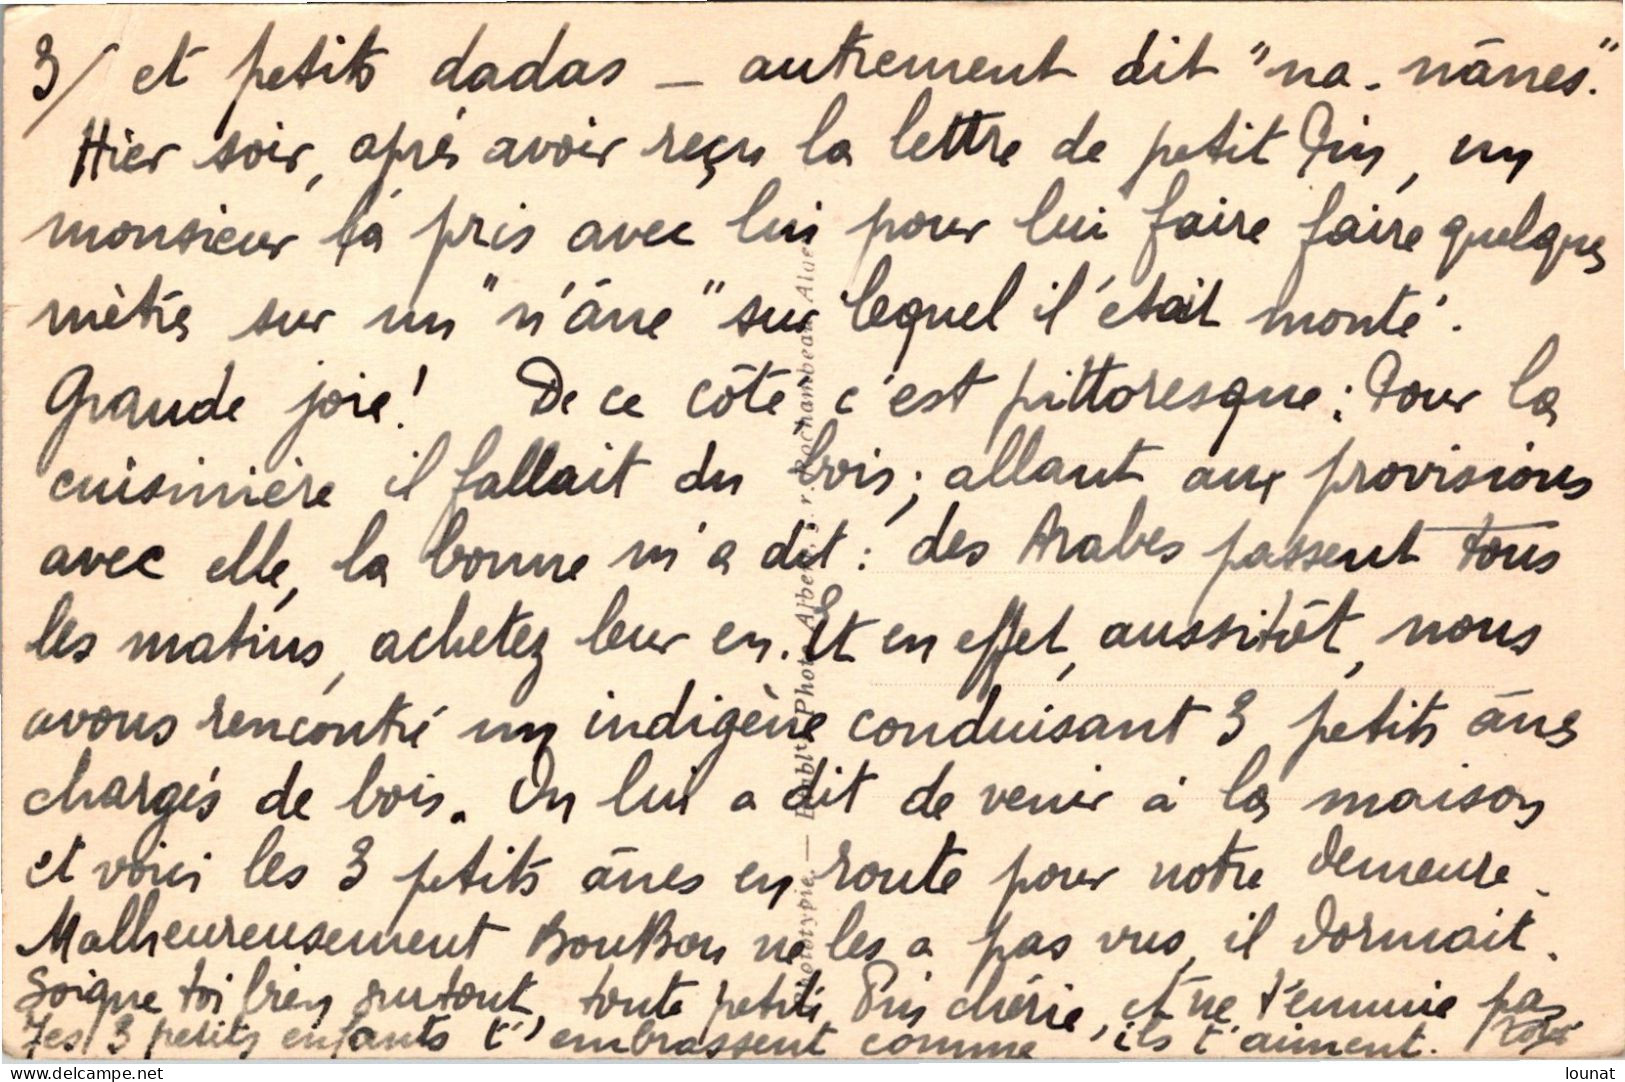 3/ et petits dadas — autrement dit "na-nânes."
Hier soir, après avoir reçu la lettre de petit Pin, un
monsieur l'a pris avec lui pour lui faire faire quelques
mètres sur un "n'âne" sur lequel il était monté.
Grande joie! De ce côté c'est pittoresque: Pour la
cuisinière il fallait du bois; allant aux provisions
avec elle, la bonne m'a dit: des Arabes passent tous
les matins, achetez leur en. Et en effet, aussitôt, nous
avons rencontré un indigène conduisant 3 petits ânes
chargés de bois. On lui a dit de venir à la maison
et voici les 3 petits ânes en route pour notre demeure.
Malheureusement BouBou ne les a pas vus, il dormait.
Soigne toi bien surtout, toute petite Pin chérie, et ne t'ennuie pas
Tes 3 petits enfants t'embrassent comme ils t'aiment.
Phototypie. — Établts Photo Albert, r. Rochambeau Alger
lounat
www.delcampe.net